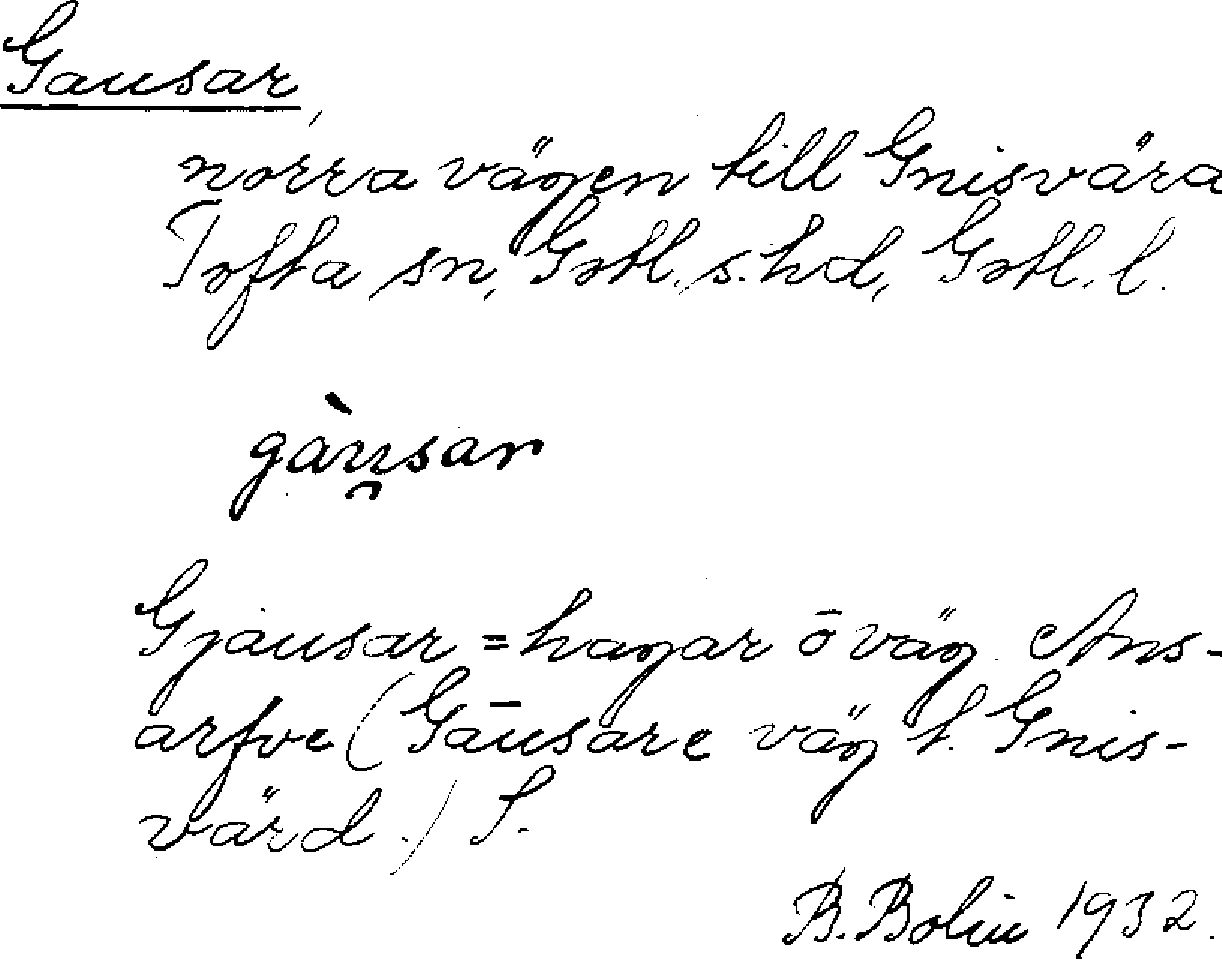 Gausar,
norra vägen till Gnisvära
Tofta sn, Gotl. s. hd, Gotl. l.
gàu̯sar
Gjausar = hagar ō väg. Ans-
arfve (Gāusare väg t. Gnis-
värd.) S.
B. Bolin 1932.